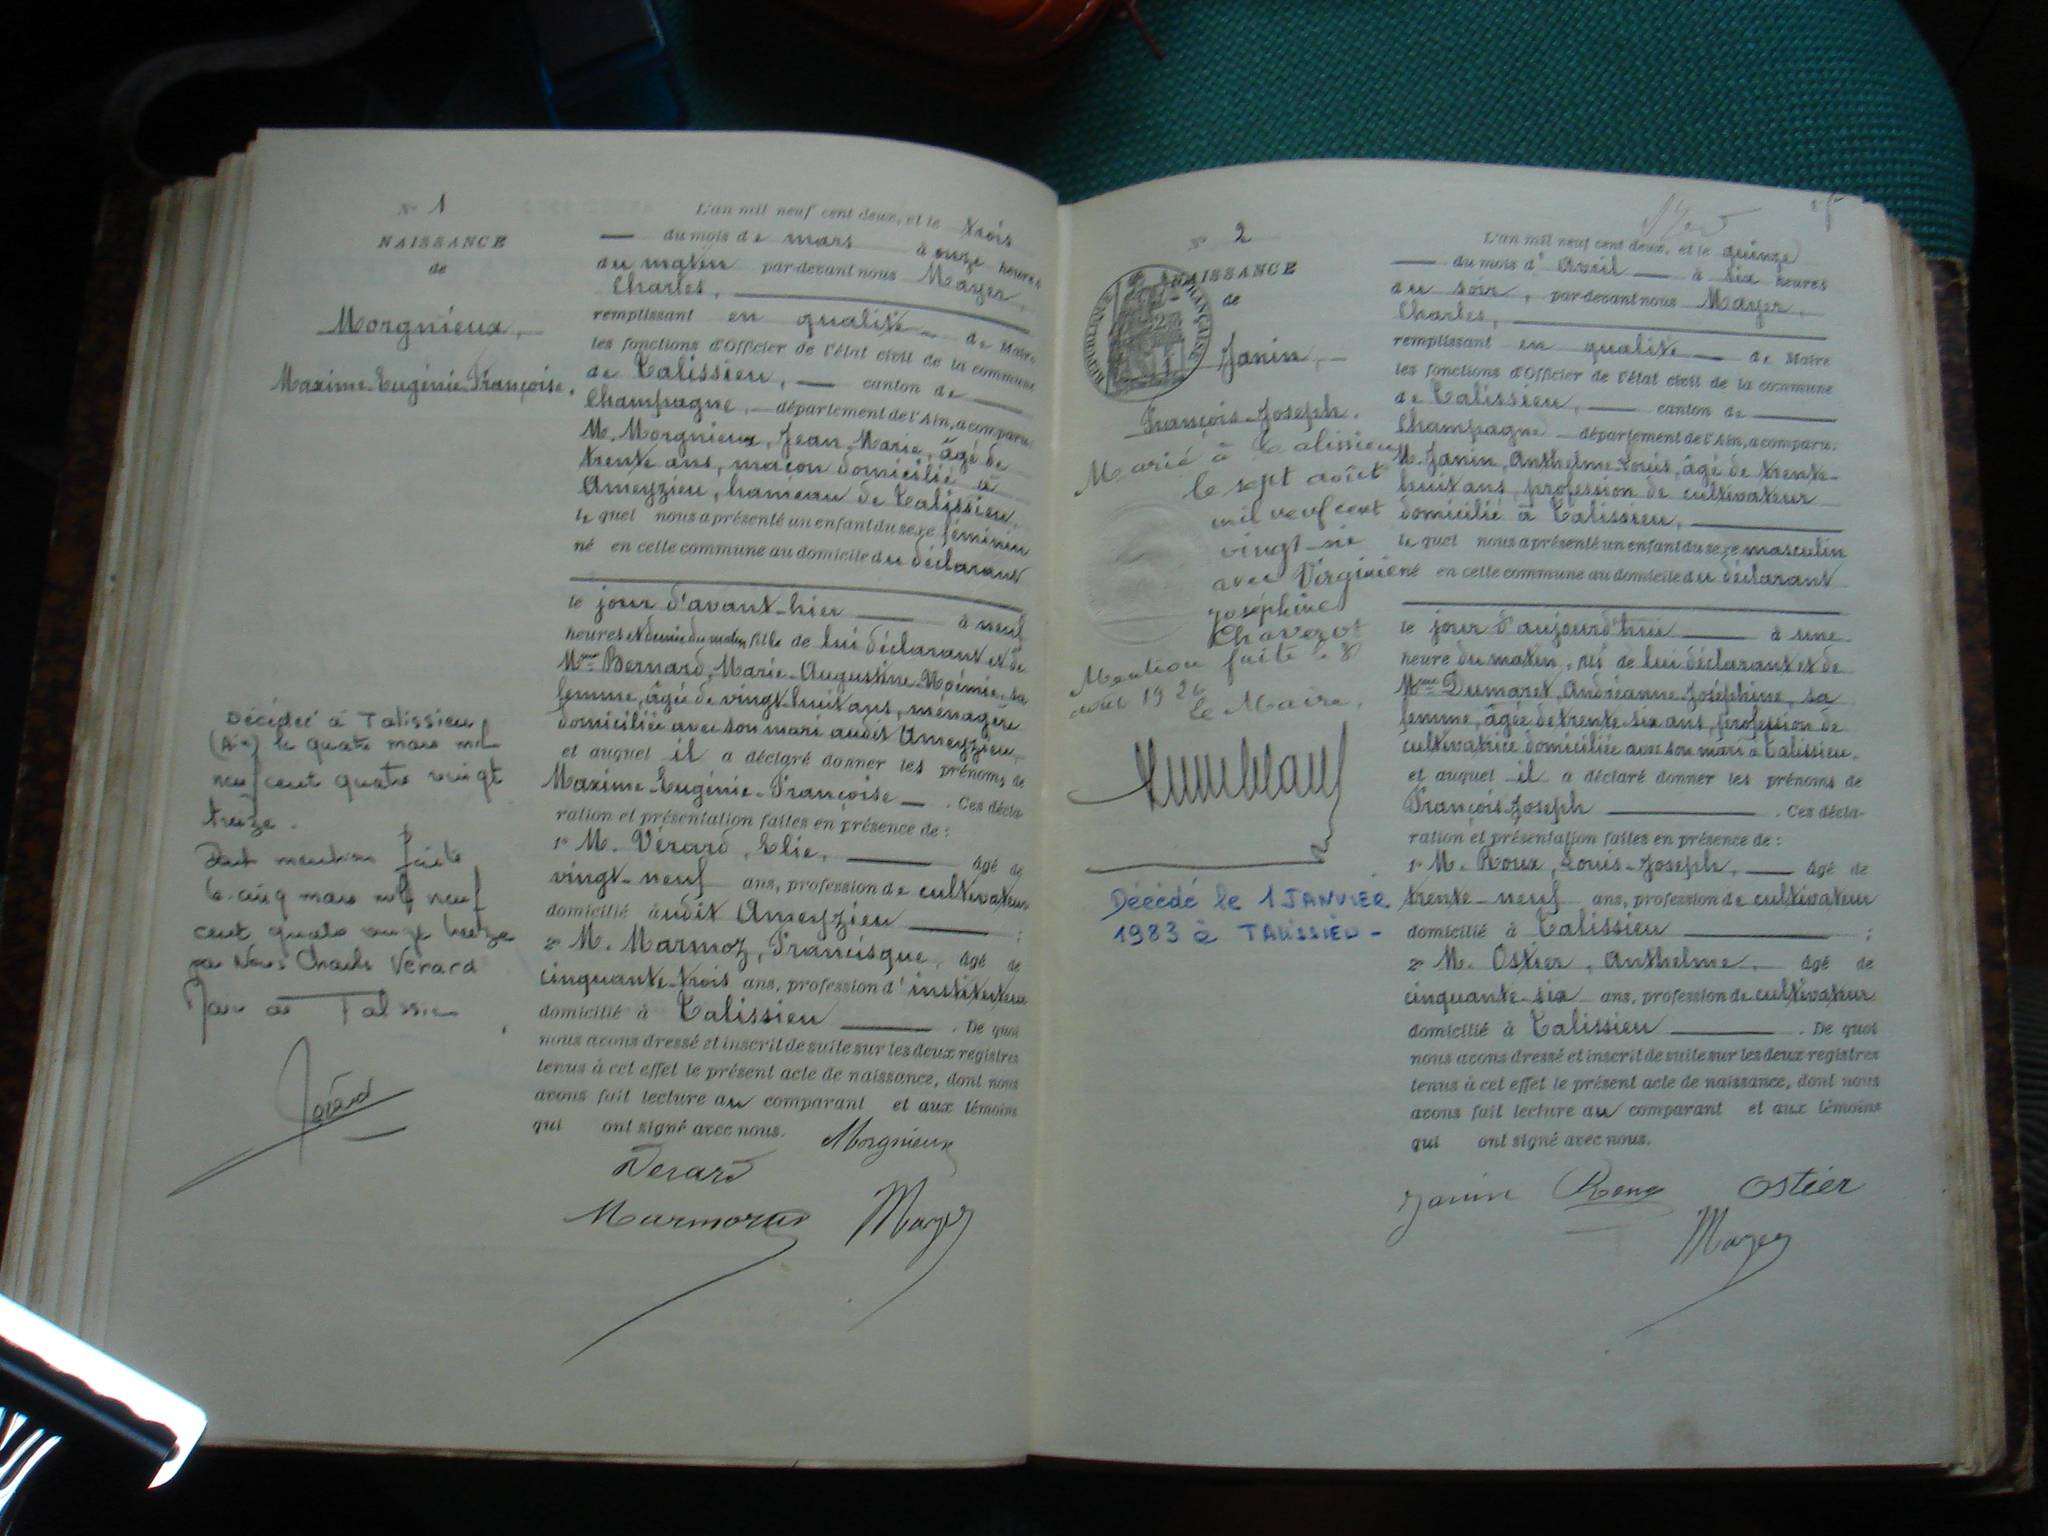 N° 1
NAISSANCE
de
Morgnieux,
Maxime-Eugénie-Françoise.
Décédée à Talissieu
(Ain) le quatre mars mil
neuf cent quatre vingt
treize.
Dont mention faite
le cinq mars mil neuf
cent quatre vingt treize
par Nous Charles Vérard
Maire de Talissieu
Vérard
L'an mil neuf cent deux, et le trois
du mois de mars à onze heures
du matin par-devant nous Mayer,
Charles,
remplissant en qualité de Maire
les fonctions d'Officier de l'état civil de la commune
de Talissieu, canton de
Champagne, département de l'Ain, a comparu:
M. Morgnieux, Jean-Marie, âgé de
trente ans, maçon domicilié à
Ameyzieu, hameau de Talissieu,
lequel nous a présenté un enfant du sexe féminin
né en cette commune au domicile du déclarant
le jour d'avant-hier à neuf
heures et demie du matin, fille de lui déclarant et de
Mme Bernard, Marie-Augustine-Noémie, sa
femme, âgée de vingt-huit ans, ménagère
domiciliée avec son mari audit Ameyzieu,
et auquel il a déclaré donner les prénoms de
Maxime-Eugénie-Françoise. Ces décla-
ration et présentation faites en présence de:
1° M. Vérard, Elie, âgé de
vingt-neuf ans, profession de cultivateur
domicilié audit Ameyzieu;
2° M. Marmoz, Francisque, âgé de
cinquante-trois ans, profession d'instituteur
domicilié à Talissieu. De quoi
nous avons dressé et inscrit de suite sur les deux registres
tenus à cet effet le présent acte de naissance, dont nous
avons fait lecture au comparant et aux témoins
qui ont signé avec nous. Morgnieux
Verard
Marmoz Mayer
N° 2
NAISSANCE
de
RÉPUBLIQUE FRANÇAISE
Janin,
François-Joseph.
Marié à Talissieu
le sept août
mil neuf cent
vingt-six
avec Virginie
Joséphine
Chaverot
Mention faite le 8
août 1926
Le Maire,
Décédé le 1 JANVIER
1983 à TALISSIEU -
L'an mil neuf cent deux, et le quinze
du mois d'Avril à six heures
du soir, par-devant nous Mayer,
Charles,
remplissant en qualité de Maire
les fonctions d'Officier de l'état civil de la commune
de Talissieu, canton de
Champagne département de l'Ain, a comparu:
M. Janin, Anthelme-Louis, âgé de trente-
huit ans, profession de cultivateur
domicilié à Talissieu,
lequel nous a présenté un enfant du sexe masculin
né en cette commune au domicile du déclarant
le jour d'aujourd'hui à une
heure du matin, fils de lui déclarant et de
Mme Dumaret, Andréanne-Joséphine, sa
femme, âgée de trente-six ans, profession de
cultivatrice domiciliée avec son mari à Talissieu.
et auquel il a déclaré donner les prénoms de
François-Joseph. Ces décla-
ration et présentation faites en présence de:
1° M. Roux, Louis-Joseph, âgé de
trente-neuf ans, profession de cultivateur
domicilié à Talissieu;
2° M. Ostier, Anthelme, âgé de
cinquante-six ans, profession de cultivateur
domicilié à Talissieu. De quoi
nous avons dressé et inscrit de suite sur les deux registres
tenus à cet effet le présent acte de naissance, dont nous
avons fait lecture au comparant et aux témoins
qui ont signé avec nous.
Janin Roux Ostier
Mayer